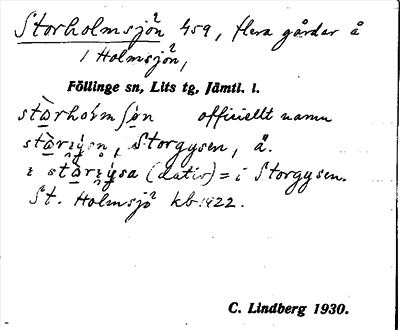 Storholmsjön 459, flera gårdar å
1 Holmsjön,
Föllinge sn, Lits tg, Jämtl. l.
officiellt namn
Storgysen, å.
(dativ) = i Storgysen.
St. Holmsjö kb 1922.
C. Lindberg 1930.